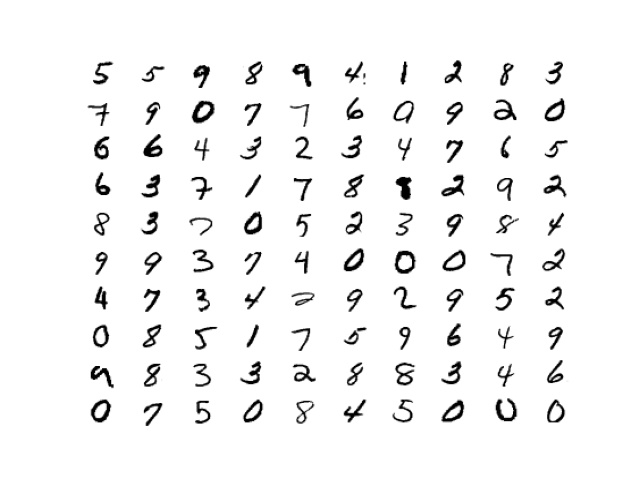 5 5 9 8 9 4 1 2 8 3
7 9 0 7 7 6 0 9 2 0
6 6 4 3 2 3 4 7 6 5
6 3 7 1 7 8 8 2 9 2
8 3 7 0 5 2 3 9 8 4
9 9 3 7 4 0 0 0 7 2
4 7 3 4 2 9 2 9 5 2
0 8 5 1 7 5 9 6 4 9
9 8 3 3 2 8 8 3 4 6
0 7 5 0 8 4 5 0 0 0